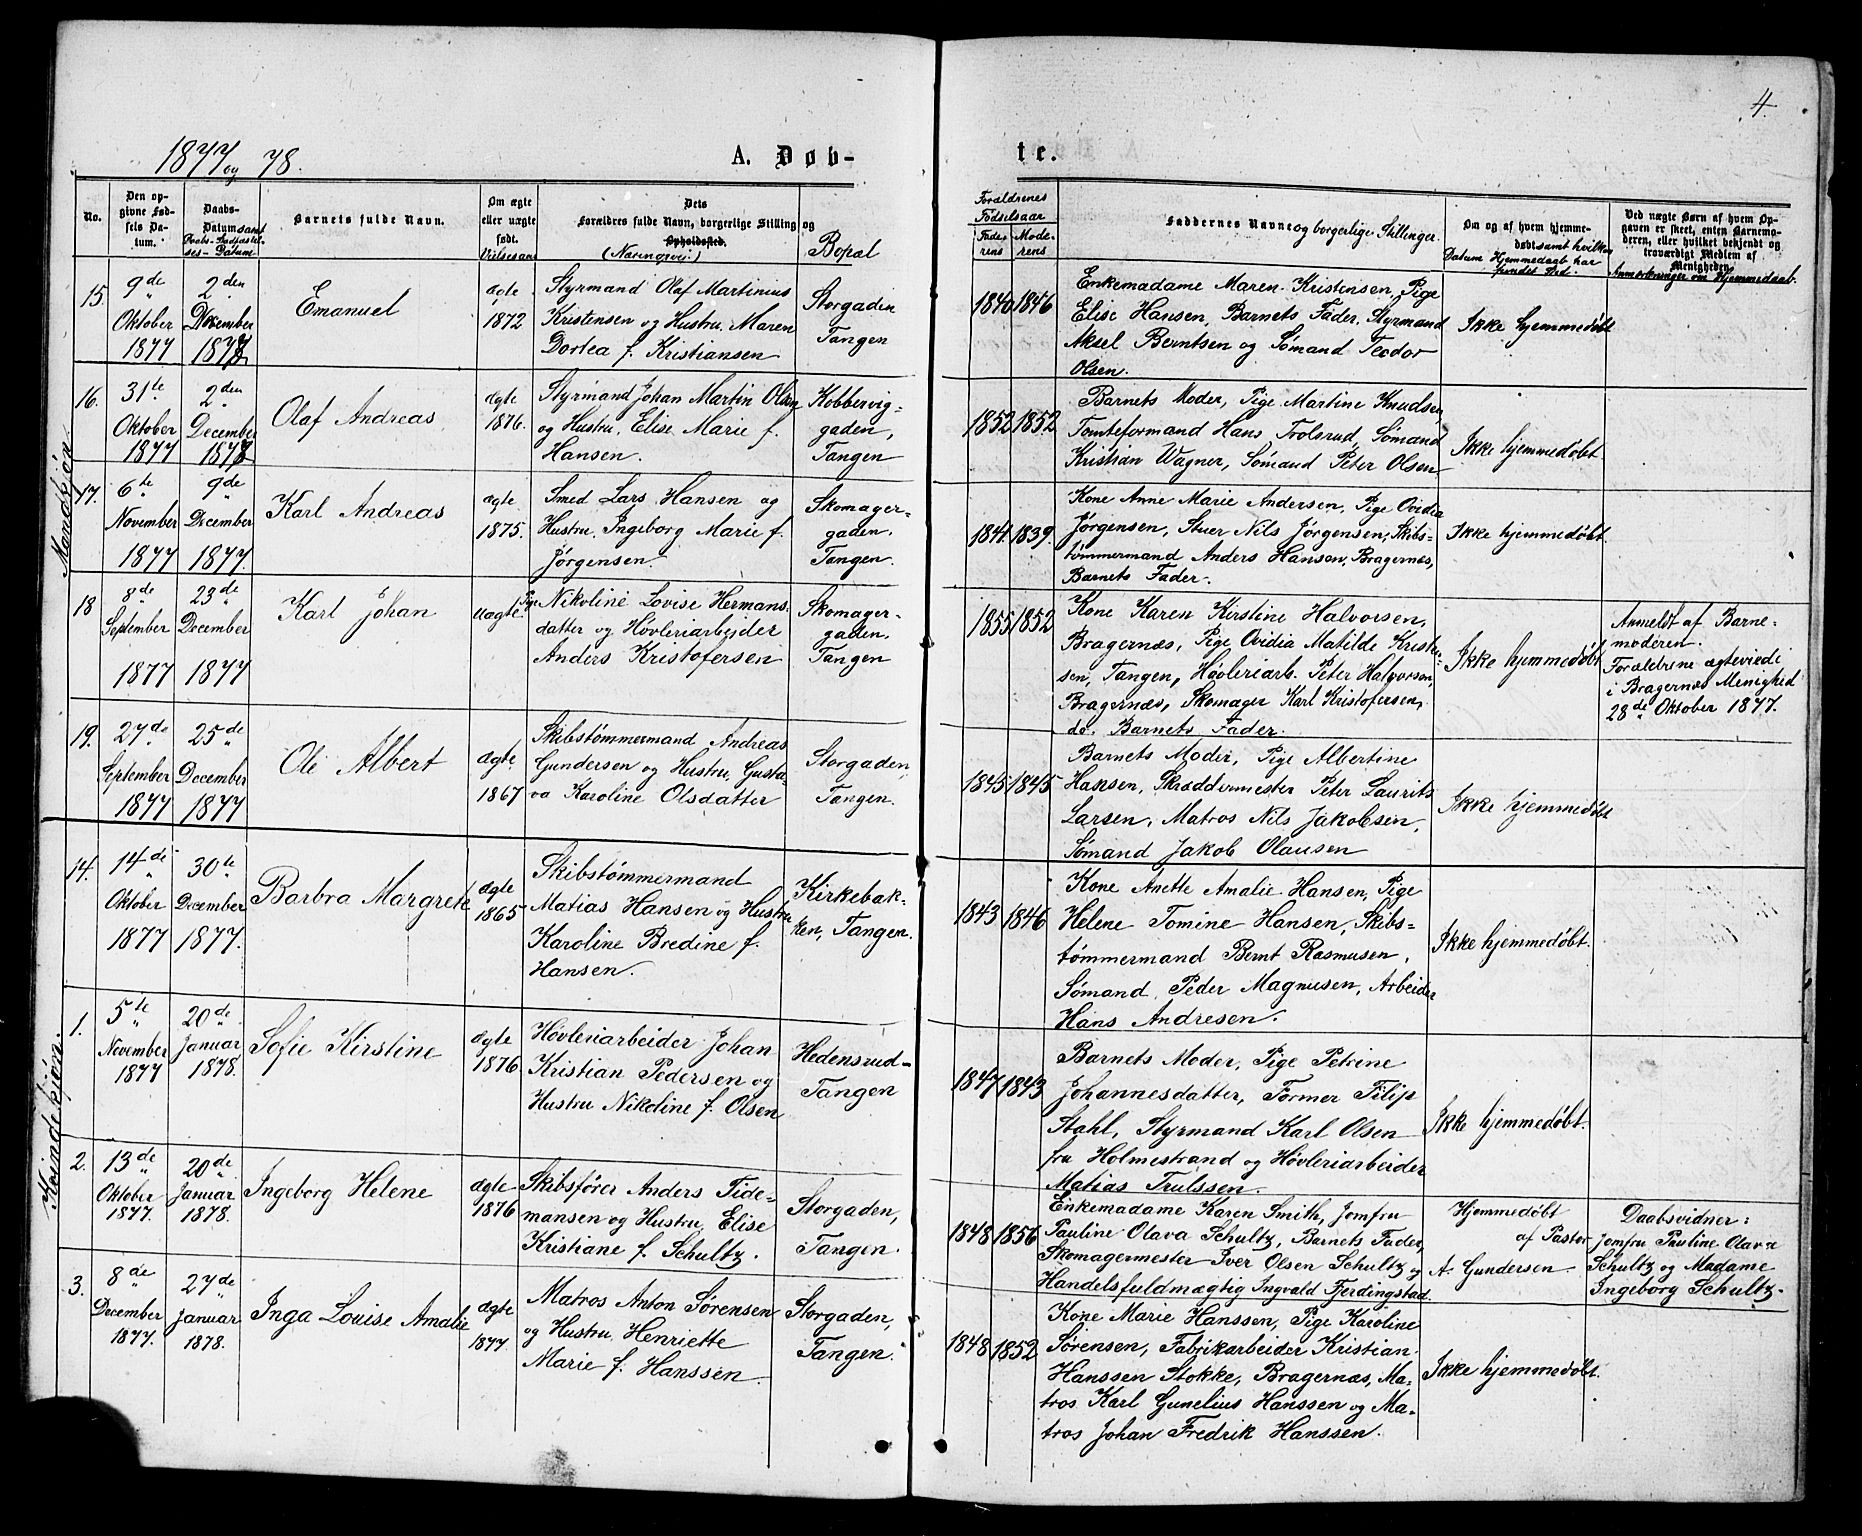 4.
1877 og 78.
A. Døb-
te.
No.
Den op-
givne Fød-
sels Da-
tum.
Daabs-
Datum samt
Daabs-Stadfæstel-
ses-Datum.
Barnets fulde Navn.
Om ægte
eller uægte
født.
Vielsesaar
Dets
Forældres fulde Navn, borgerlige Stilling og
Opholdssted.
(Næringsvei)
Bopæl
Forældrenes
Fødselsaar
Fade-
rens
Mode-
rens
Faddernes Navne og borgerlige Stillinger.
Om og af hvem hjemme-
døbt samt hvilken
Datum Hjemmedaab har
fundet Sted.
Ved uægte Børn af hvem Op-
gaven er skeet, enten Barnemo-
deren, eller hvilket bekjendt og
troværdigt Medlem af
Menigheden.
Anmærkninger om Hjemmedaab.
Mandkjøn.
15.
9de
Oktober
1877
2den
December
1877
Emanuel
ægte
1872
Styrmand Olaf Martinius
Kristensen og Hustru, Maren
Dortea f. Kristiansen
Storgaden
Tangen
1840
1846
Enkemadame Maren Kristensen, Pige
Elise Hansen, Barnets Fader, Styrmand
Aksel Berntsen og Sømand Teodor
Olsen.
Ikke hjemmedøbt
16.
31te
Oktober
1877
2den
December
1877
Olaf Andreas
ægte
1876.
Styrmand Johan Martin Olsen
og Hustru, Elise Marie f.
Hansen.
Kobbervig-
gaden,
Tangen
1852
1852
Barnets Moder, Pige Martine Knudsen,
Tomteformand Hans Trolsrud, Sømand
Kristian Wagner, Sømand Peter Olsen
Ikke hjemmedøbt.
17.
6te
November
1877
9de
December
1877.
Karl Andreas
ægte
1875.
Smed Lars Hansen og
Hustru, Ingeborg Marie f.
Jørgensen.
Skomager-
gaden.
Tangen.
1841.
1839.
Kone Anne Marie Andersen, Pige Ovidia
Jørgensen, Stuer Nils Jørgensen, Skibs-
tømmermand Anders Hansen, Bragernæs,
Barnets Fader.
Ikke hjemmedøbt.
18
8de
September
1877
23de
December
1877
Karl Johan
uægte
Pige Nikoline Lovise Hermans-
datter og Høvleriarbeider
Anders Kristofersen
Skomager-
gaden.
Tangen
1855
1852
Kone Karen Kirstine Halvorsen,
Bragernæs, Pige Ovidia Matilde Kristen-
sen, Tangen, Høvleriarb. Peter Halvorsen,
Bragernæs, Skomager Karl Kristofersen,
do. Barnets Fader.
Ikke hjemmedøbt
Anmeldt af Barne-
moderen.
Forældrene ægteviede i
i Bragernæs Menighed
28de Oktober 1877.
19.
27de
September
1877
25de
December
1877
Ole Albert
ægte
1867
Skibstømmermand Andreas
Gundersen og Hustru, Gusta-
va Karoline Olsdatter
Storgaden,
Tangen.
1845
1845
Barnets Moder, Pige Albertine
Hansen, Skræddermester Peter Laurits
Larsen, Matros Nils Jakobsen,
Sømand Jakob Olausen
Ikke hjemmedøbt
Kvindekjøn.
14.
14de
Oktober
1877
30te
December
1877.
Barbra Margrete
ægte
1865
Skibstømmermand
Matias Hansen og Hustru
Karoline Bredine f.
Hansen.
Kirkebak-
ken, Tangen.
1843
1846
Kone Anette Amalie Hansen, Pige
Helene Tomine Hansen, Skibs-
tømmermand Bernt Rasmusen,
Sømand Peder Magnusen, Arbeider
Hans Andresen.
Ikke hjemmedøbt.
1.
5te
November
1877
20de
Januar
1878.
Sofie Kirstine
ægte
1876
Høvleriarbeider Johan
Kristian Pedersen og
Hustru Nikoline f. Olsen
Hedensrud-
Tangen
1847
1843
Barnets Moder, Pige Petrine
Johannesdatter, Former Filip
Stahl, Styrmand Karl Olsen
fra Holmestrand og Høvleriarbeider
Matias Trulssen.
Ikke hjemmedøbt.
2.
13de
Oktober
1877.
20de
Januar
1878.
Ingeborg Helene
ægte
1876
Skibsfører Anders Tide-
mansen og Hustru, Elise
Kristiane f. Schultz.
Storgaden,
Tangen.
1848
1856
Enkemadame Karen Smith, Jomfru
Pauline Olava Schultz, Barnets Fader,
Skomagermester Iver Olsen Schultz og
Handelsfuldmægtig Ingvald Ferdingstad.
Hjemmedøbt
af Pastor
A. Gundersen.
Daabsvidner:
Jomfru Pauline Olava
Schultz og Madame
Ingeborg Schultz.
3.
8de
December
1877.
27de
Januar
1878.
Inga Louise Amalie
ægte
1877.
Matros Anton Sørensen
og Hustru, Henriette
Marie f. Hanssen.
Storgaden,
Tangen.
1848
1852
Kone Marie Hanssen, Pige Karoline
Sørensen, Fabrikarbeider Kristian
Hanssen Stokke, Bragernæs, Ma-
tros Karl Gunelius Hanssen og Ma-
tros Johan Fredrik Hanssen.
Ikke hjemmedøbt.